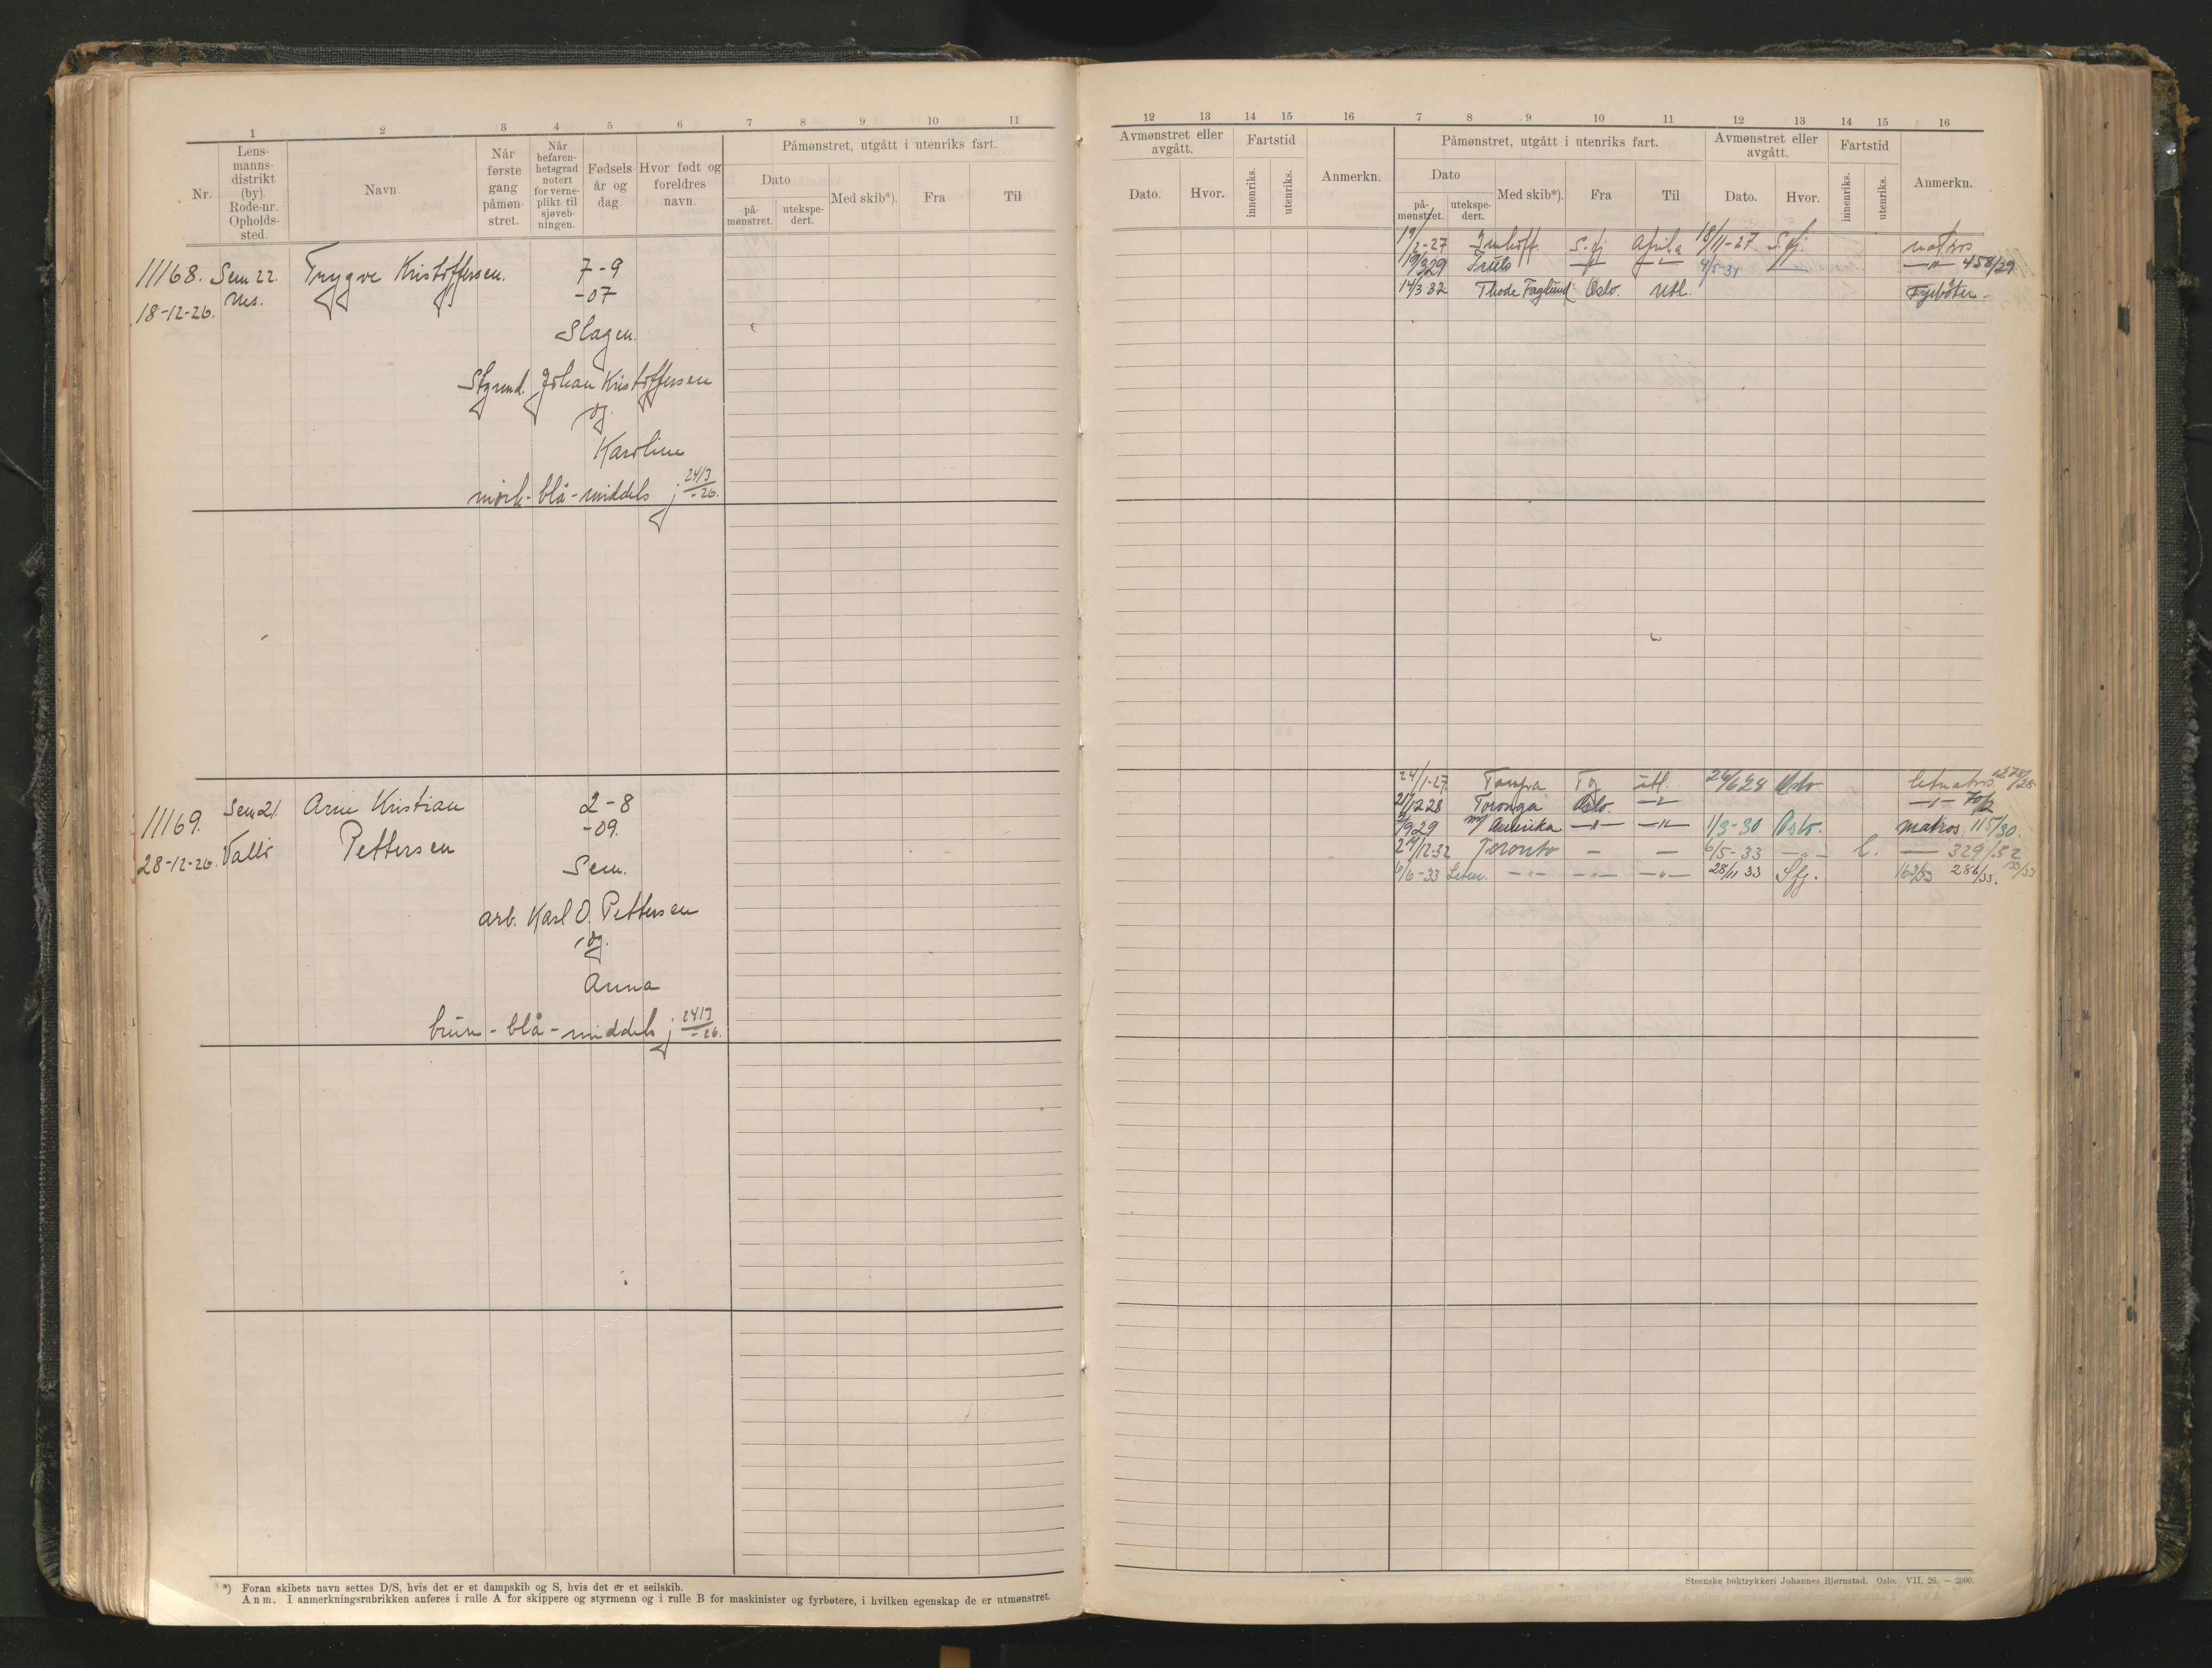 1 2 3 4 5 6 7 8 9 10 11
Nr.
Lens-
manns-
distrikt
(by).
Rode-nr.
Opholds-
sted.
Navn.
Når
første
gang
påmøn-
stret.
Når
befaren-
hetsgrad
notert
for verne-
plikt til
sjøveb-
ningen.
Fødsels
år og
dag.
Hvor født og
foreldres
navn.
Påmønstret, utgått i utenriks fart.
Dato
på-
mønstret.
utekspe-
dert.
Med skib*).
Fra
Til
11168. Sem 22. Trygve Kristoffersen. 7-9
18-12-26. Nes. -07
Slagen.
Styrmd. Johan Kristoffersen
og
Karoline
mørk-blå-middels j 24/3 -26.
11169. Sem 21. Arne Kristian 2-8
28-12-26. Vallø Pettersen -09.
Sem.
arb. Karl O. Pettersen
og
Anna
brun-blå-middels j 24/3 -26.
*) Foran skibets navn settes D/S, hvis det er et dampskib og S, hvis det er et seilskib.
Anm. I anmerkningsrubrikken anføres i rulle A for skippere og styrmenn og i rulle B for maskinister og fyrbøtere, i hvilken egenskap de er utmønstret.
12 13 14 15 16 7 8 9 10 11 12 13 14 15 16
Avmønstret eller
avgått.
Dato.
Hvor.
Fartstid
innenriks.
utenriks.
Anmerkn.
Påmønstret, utgått i utenriks fart.
Dato
på-
mønstret.
utekspe-
dert.
Med skib*).
Fra
Til
Avmønstret eller
avgått.
Dato.
Hvor.
Fartstid
innenriks.
utenriks.
Anmerkn.
19/2-27 Imhoff. S.fj Afrika 18/11-27 S.fj. matros
19/3 29 Truls —"— —"— 4/5-31 — —"— 458/29
14/3 32 Thode Fagelund Oslo. Utl. Fyrbøter.
24/1-27. Tampa Tg utl. 26/6 28 Oslo letmatros.
21/12 28 Toronga Oslo. —"— —"— 70/2
/9 29 m/ Amerika —"— —"— 1/3-30 Oslo. matros. 115/30.
24/12-32 Toronto — — 6/5-33 —"— — 329/32
6/6-33 —"— —"— —"— 28/11 33 Sfj. 163/33 286/33.
Steenske boktrykkeri Johannes Bjørnstad. Oslo. VII. 26. — 2000.